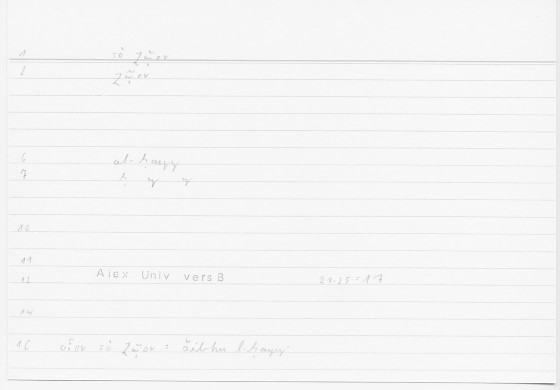 1 τὸ ζῷον
2 ζῷον
6 al-ḥayy
7 ḥ y y
10
11
12 Alex Univ vers B 21.25-17
14
16 οἷον τὸ ζῷον = l-ḥayy